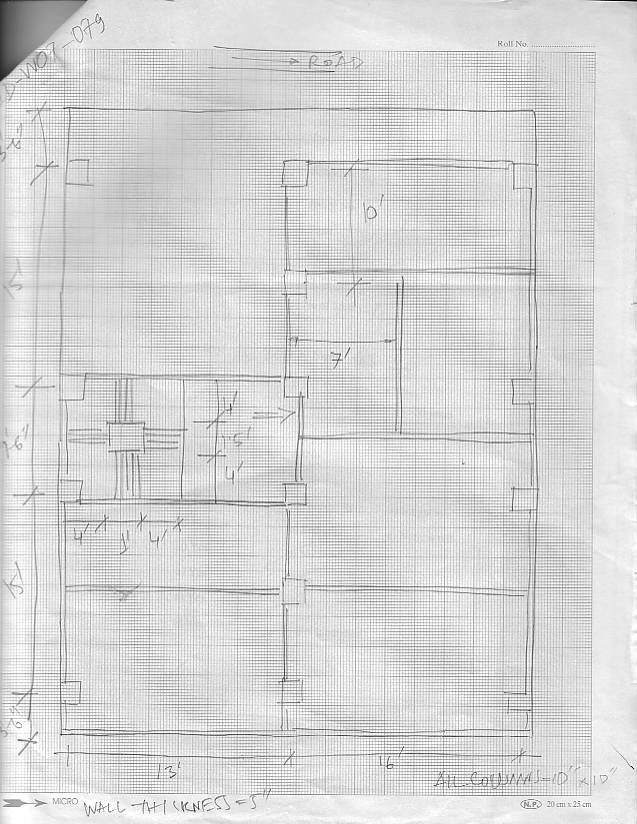 D-W07-079
Roll No.
→ ROAD
10'
15'
7'
4'
1'5'
4'
4' 4'
15'
13' 16'
ALL COLUMNS=10"x10"
MICRO
WALL THICKNESS=5"
N.P. 20 cm x 25 cm